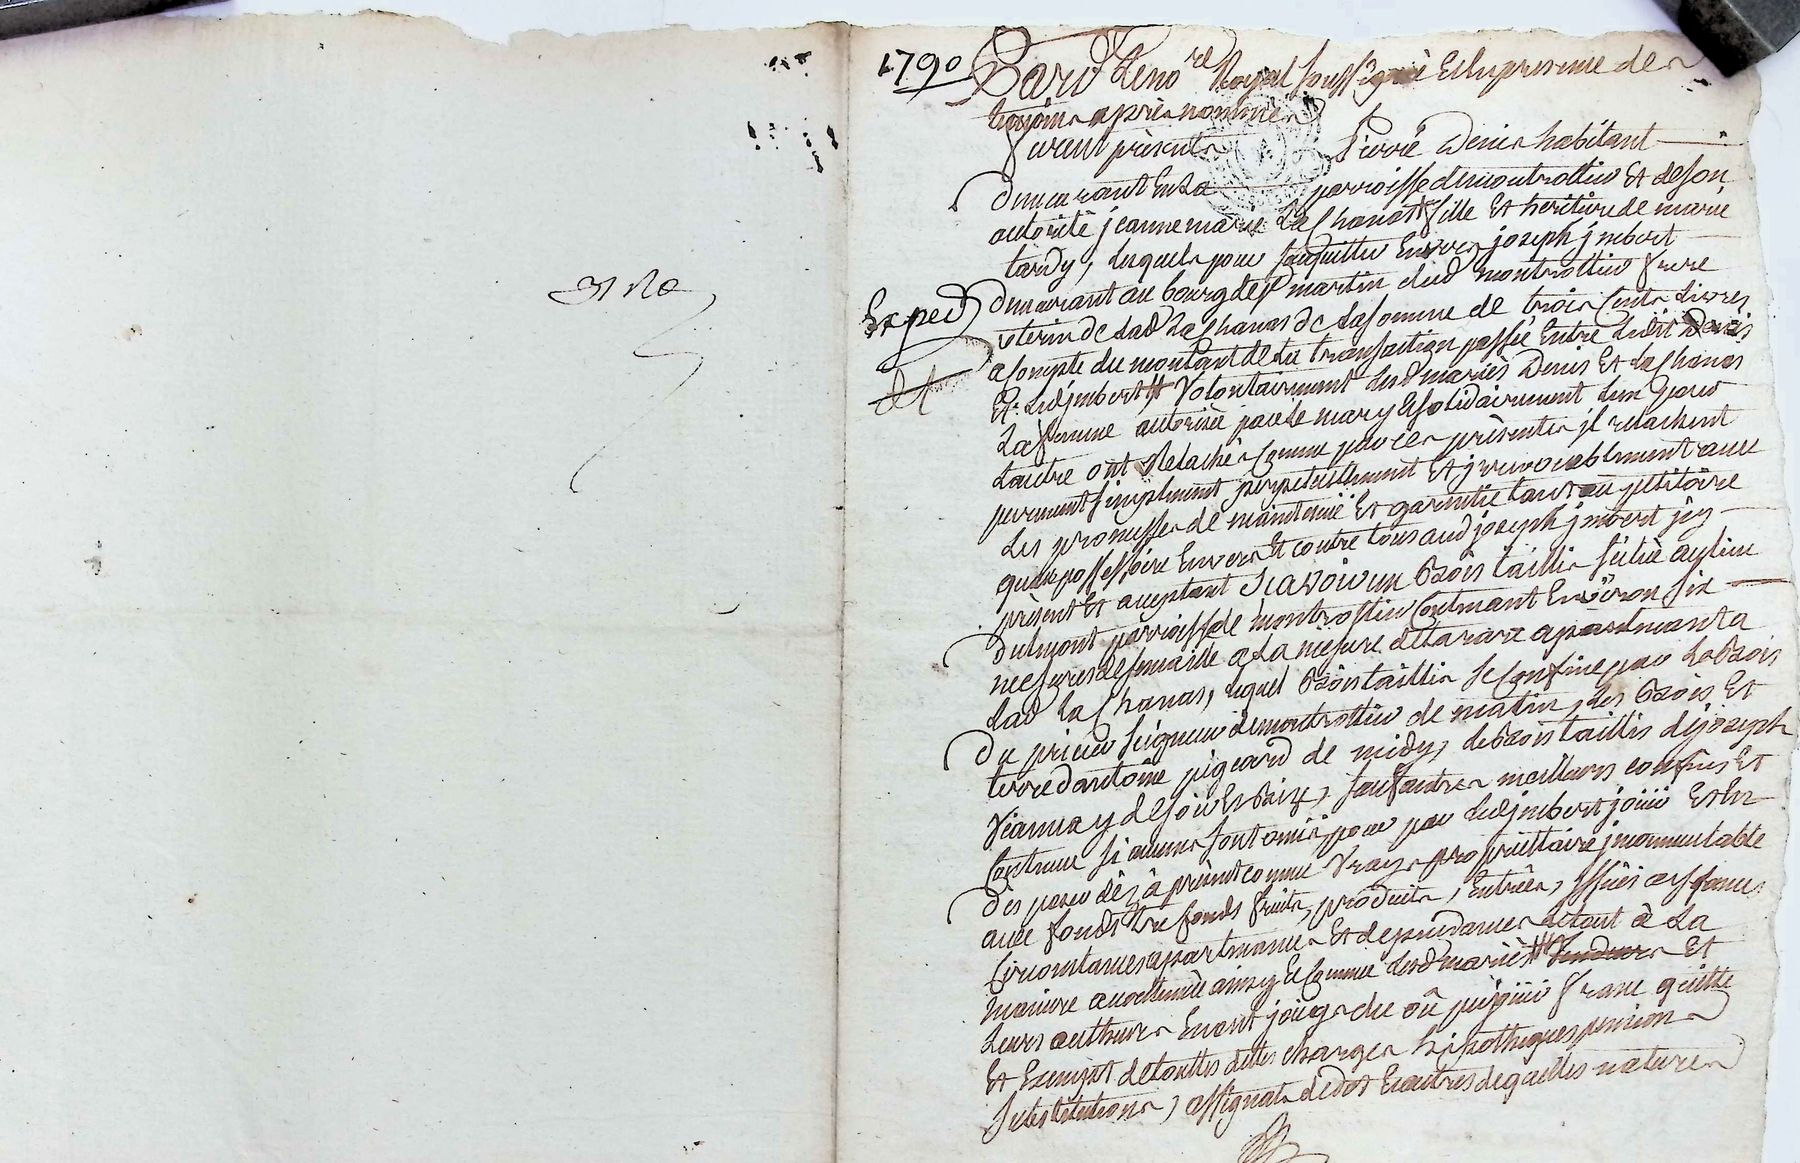 1790
Pardt le no.re Royal soussigné Et en presence des
temoins après nommés
furent présents Pierre Denis habitant
demeurant En La parroisse de montrottier Et de son
autorité jeanne marie La Chanas fille Et heritiere de marie
tardy, lesquels pour s'acquitter Envers joseph jmbert
demeurant au bourg de St martin dud montrottier frere
Exped
uterin de Lad La Chanas de La somme de trois Cents Livres
acompte du montant de La transaction passée Entre Ledit Denis
Et Led jmbert Volontairement Lesd mariés Denis Et La Chanas
La femme autorisée par Le mary Et solidairement L'un pour
L'autre ont Relachés Comme par ces présentes jl relachent
purement simplement perpetuellement Et jrrevocablement avec
Les promesses de maintenüe Et garentie tant au petitoire
que possessoire Envers Et contre tous aud joseph jmbert jcy
présent Et aceptant Scavoir un Bois taillis situé au lieu
dulmont parroisse de montrottier Contenant Environ six
mesures de semaille a La mesure de tarare apartenant a
Lad La Chanas, lequel Bois taillis se Confine par Le Bois
du prieur seigneur de montrottier de matin, Les Bois Et
terre d'antoine pigeard de midy, le Bois taillis de joseph
Viannay de soir Et Bize, sauf autres meilleurs confins Et
Contenue si aucuns sont omis pour par Led jmbert joüir Et En
des pour dès à présent comme Vray propriettaire jncommutable
avec fonds tres fonds fruits, produits, Entrées, jssües aisances
Circonstances apartenances Et dependances Le tout à La
maniere accoutumée ainsy Et Comme Lesd mariés Et
Leurs autheurs En ont joüy du ou pü joüir franc quitte
Et Exempt de touttes dettes charges hipotheques pension
substitutions, assignats de dot Et autres de quelles natures